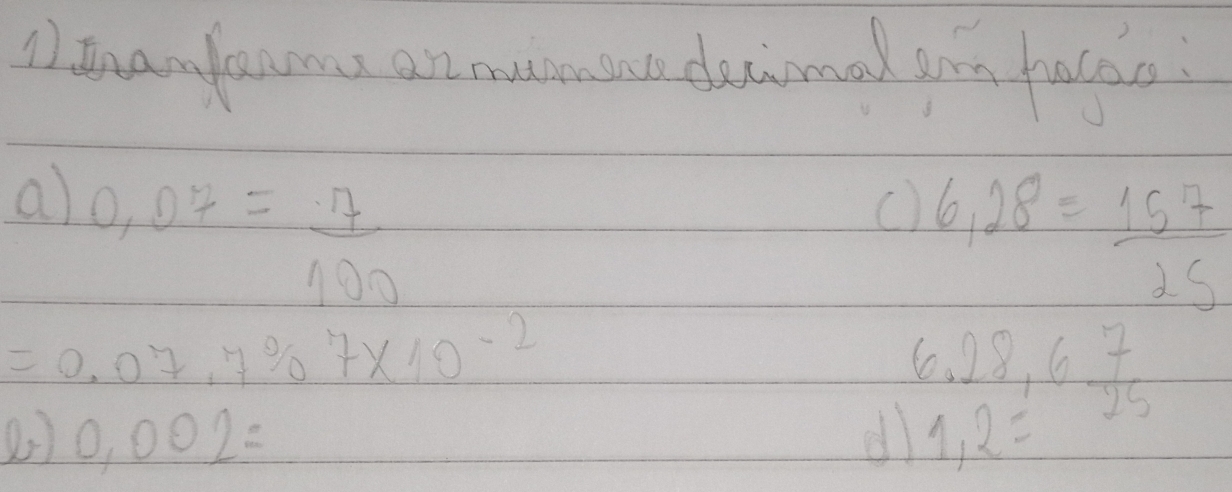 1) tranforme os numero decimal em fração:
a) 0,07 = 7/100
c) 6,28 = 157/25
= 0.07, 7% 7x10⁻²
6.28, 6 7/25
b) 0,002 =
d) 1,2 =